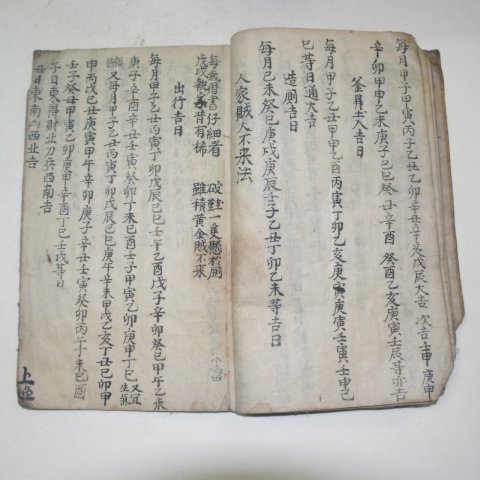 每月甲子甲寅丙子乙丑乙卯辛丑辛亥戊辰大吉 次吉壬申庚申
辛卯甲申乙未庚子己巳癸丑辛酉 癸酉乙亥庚寅壬辰等亦吉
釜鼎土入吉日
每月甲子乙丑甲申乙酉丙寅丁卯乙亥庚寅庚寅壬寅壬申己
巳等日通大吉
造厠吉日
每月己未癸巳庚戌庚辰壬子乙丑丁卯乙未等吉日
人家賊人不來法
每執曆書仔細看 破鞋一隻懸於厠
戊戌執 昔有稀 雖積黃金賊不來
出行吉日
每月甲子乙丑丙寅丁卯戊辰己巳壬午乙酉戊子辛卯癸巳甲午乙未
庚子辛丑壬寅癸卯丁未己酉壬子甲寅乙卯庚申丁巳又宜
又每月甲子乙丑丙寅丁卯戊辰己巳庚午辛未甲戌乙亥丁丑己卯甲
申丙戌己丑庚寅甲午辛卯庚子辛丑壬寅癸卯丙午丁未己酉
壬子癸丑甲寅乙卯庚申辛酉丁巳壬戌等日
子日東得財北刀兵西南吉
丑日東南 西北吉